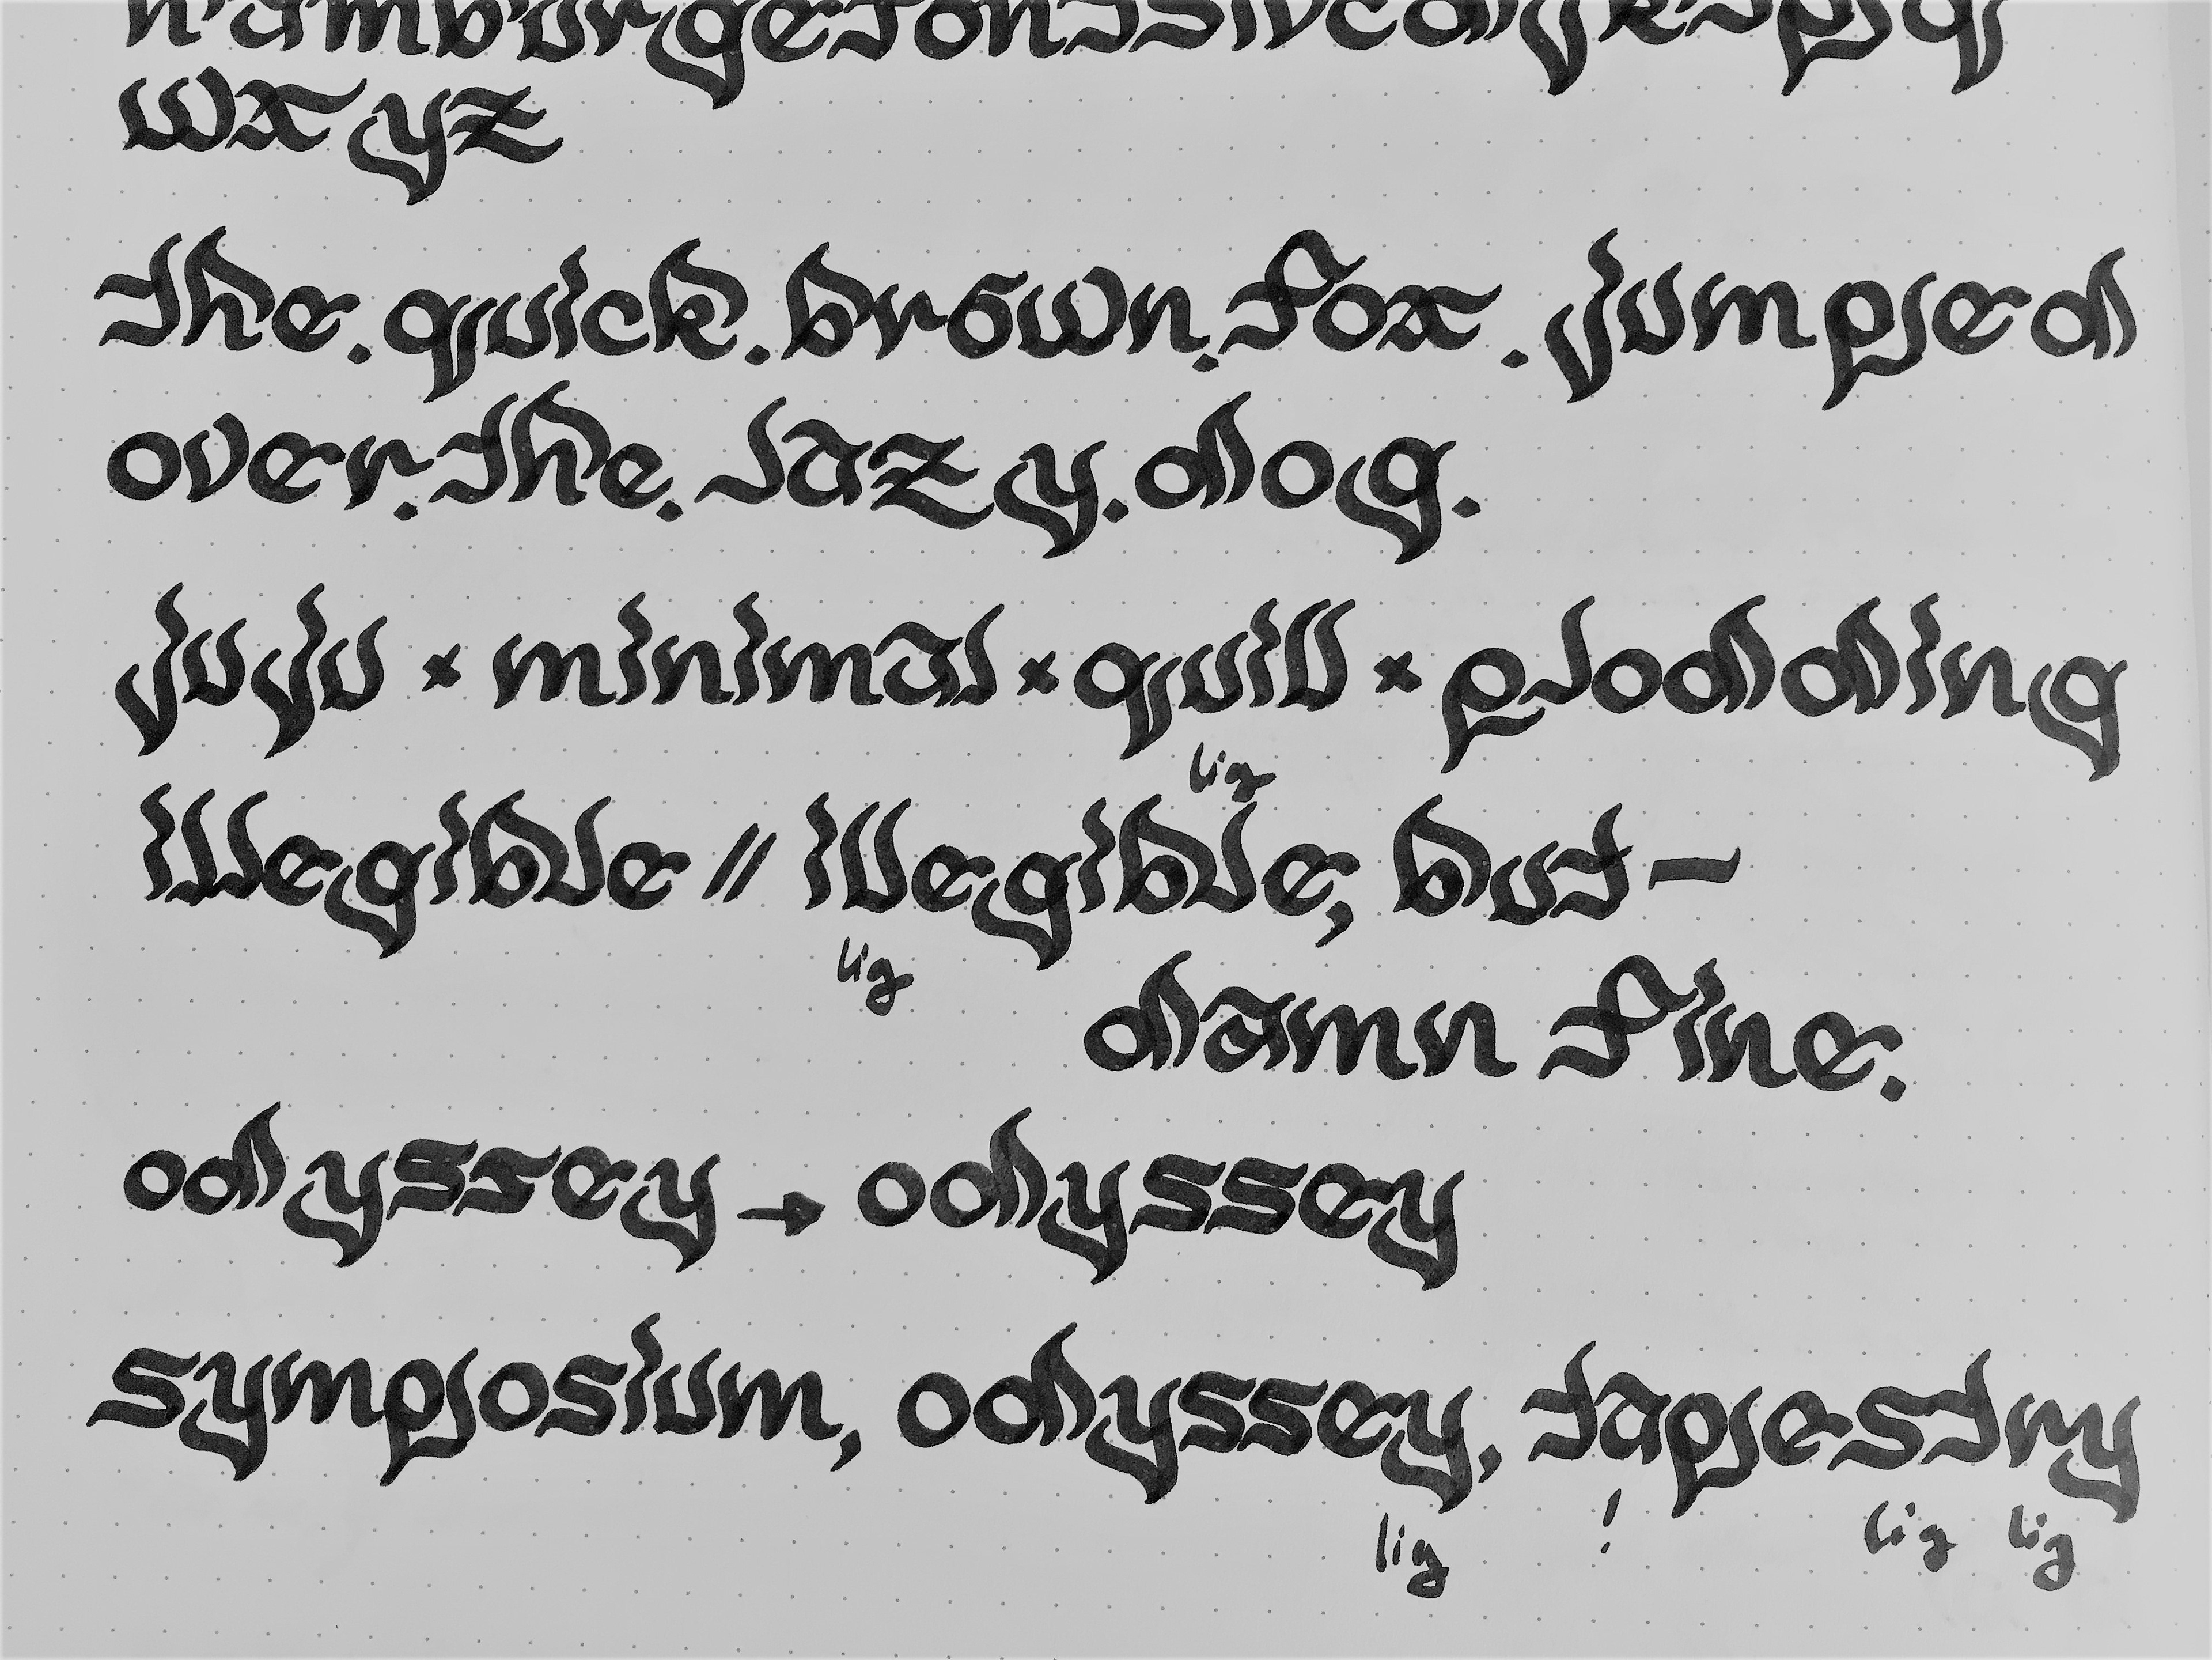 hamburgefontsivcdjklpq
wxyz
the.quick.brown.fox.jumped
over.the.lazy.dog.
juju × minimal × quill × plodding
lig
illegible // illegible, but—
lig
damn fine.
odyssey → odyssey
symposium, odyssey, tapestry
lig ! lig lig